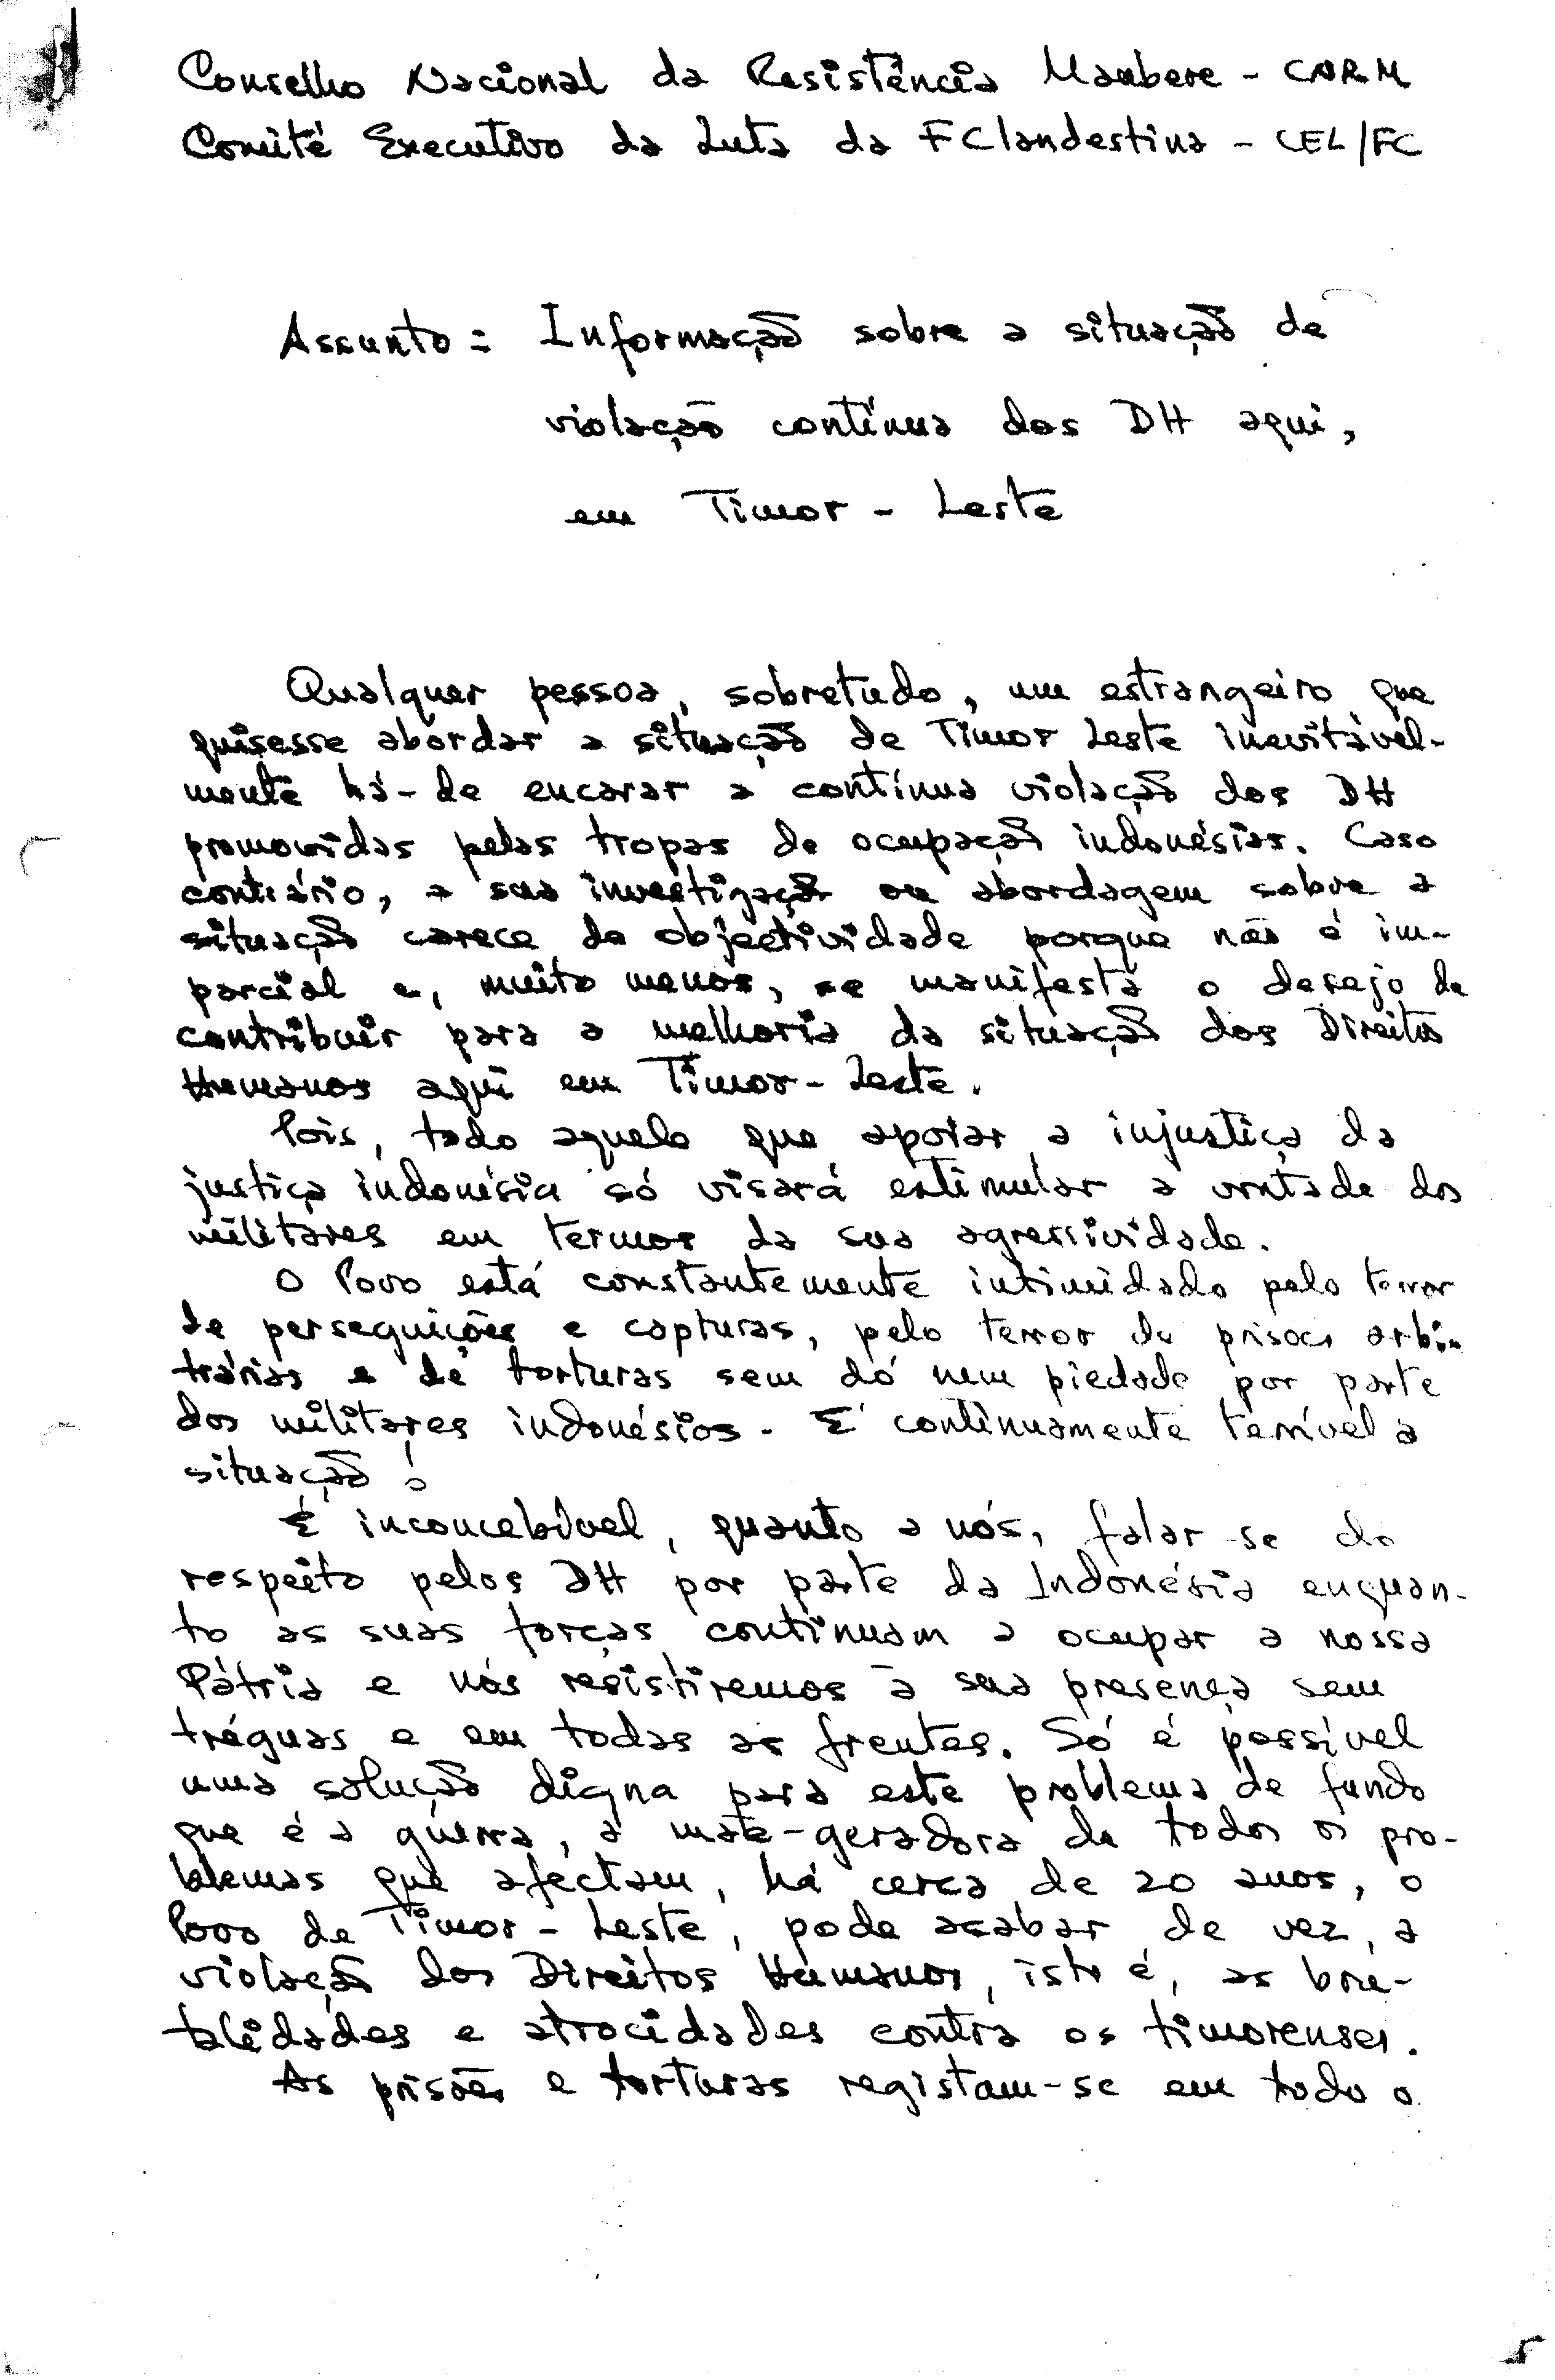 Conselho Nacional da Resistência Maubere - CNRM
Comité Executivo da Luta da FClandestina - CEL/FC
Assunto: Informação sobre a situação de
violação contínua dos DH aqui,
em Timor-Leste
Qualquer pessoa, sobretudo, um estrangeiro que
quisesse abordar a situação de Timor Leste inevitável-
mente há-de encarar a contínua violação dos DH
promovidas pelas tropas de ocupação indonésias. Caso
contrário, a sua investigação ou abordagem sobre a
situação carece de objectividade porque não é im-
parcial e, muito menos, se manifesta o desejo de
contribuir para a melhoria da situação dos Direitos
Humanos aqui em Timor-Leste.
Pois, todo aquele que apoiar a injustiça da
justiça indonésia só visará estimular a vontade dos
militares em termos da sua agressividade.
O Povo está constantemente intimidado pelo terror
de perseguições e capturas, pelo terror de prisões arbi-
trárias e de torturas sem dó nem piedade por parte
dos militares indonésios. É continuamente terrível a
situação!
É inconcebível, quanto a nós, falar-se do
respeito pelos DH por parte da Indonésia enquan-
to as suas forças continuam a ocupar a nossa
Pátria e nós resistiremos à sua presença sem
tréguas e em todas as frentes. Só é possível
uma solução digna para este problema de fundo
que é a guerra, a mãe-geradora de todos os pro-
blemas que afectam, há cerca de 20 anos, o
Povo de Timor-Leste, pode acabar de vez, a
violação dos Direitos Humanos, isto é, as bru-
talidades e atrocidades contra os timorenses.
As prisões e torturas registam-se em todo o